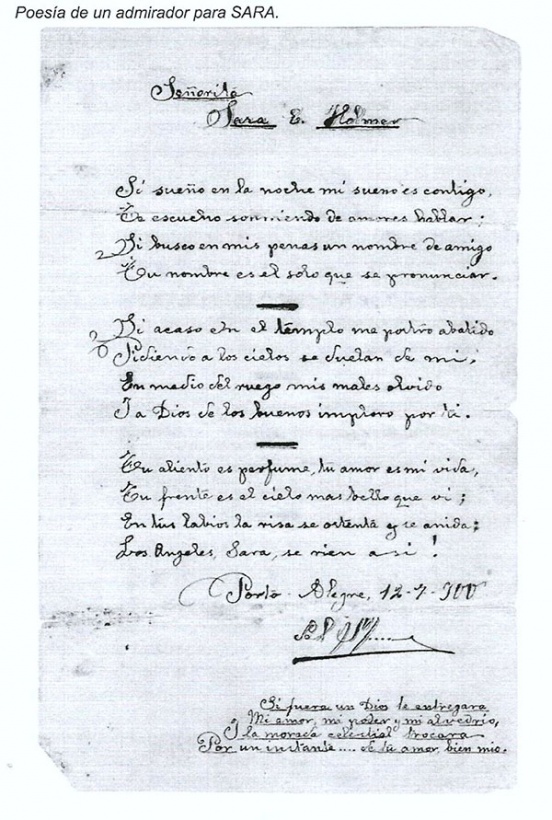 Poesía de un admirador para SARA.
Señorita
Sara E. Holmer
Si sueño en la noche mi sueño es contigo,
Te escucho sonriendo de amores hablar;
Si busco en mis penas un nombre de amigo
Tu nombre es el solo que se pronunciar.
Si acaso en el templo me postro abatido
Pidiendo a los cielos se duelan de mi,
En medio del ruego mis males olvido
I a Dios de los buenos imploro por ti.
Tu aliento es perfume, tu amor es mi vida,
Tu frente es el cielo mas bello que vi;
En tus labios la risa se ostenta y se anida;
Los Angeles, Sara, se rien asi!
Porto Alegre, 12-7-900
Si fuera un Dios te entregara
Mi amor, mi poder y mi alvedrio,
I la morada celestial trocara
Por un instante.... de tu amor, bien mio.